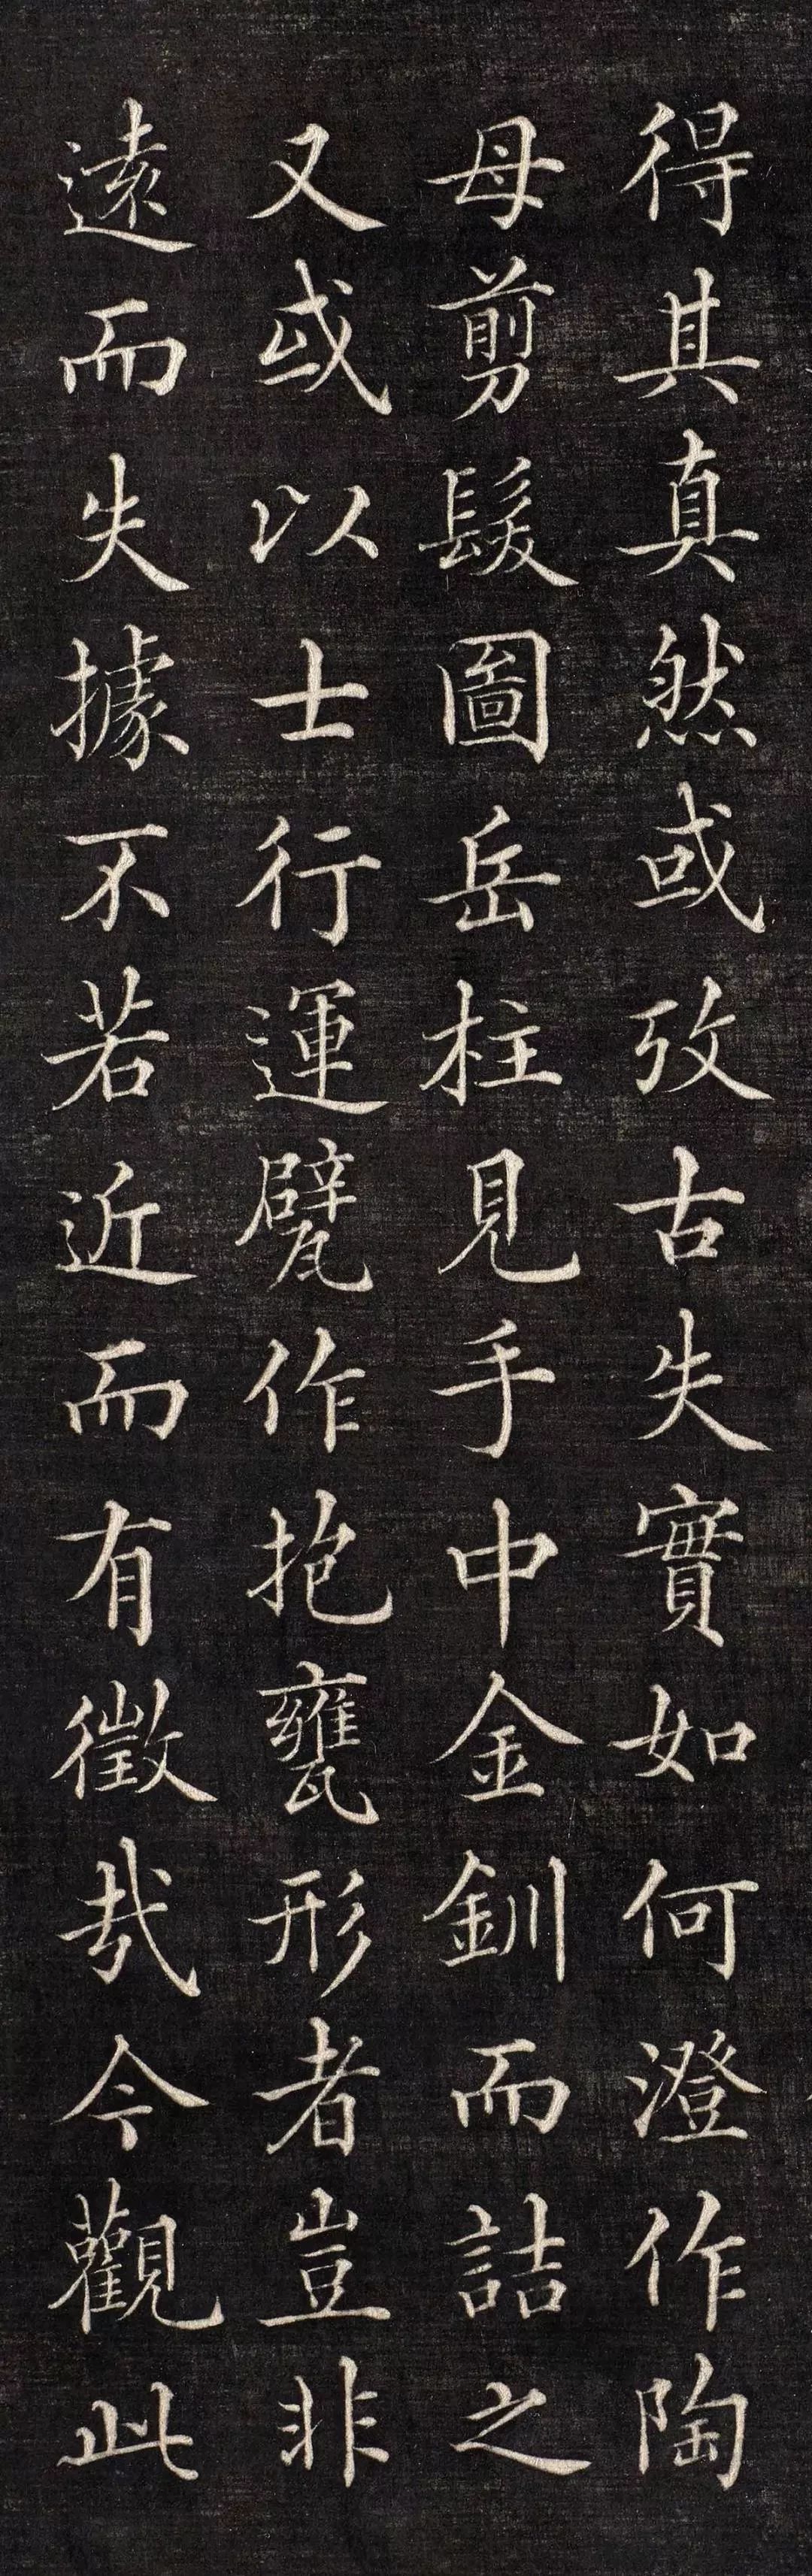 得其真然或攷古失實如何澄作陶
母剪髮圖岳柱見手中金釧而詰之
又或以士行運甓作抱甕形者豈非
遠而失據不若近而有徵哉今觀此